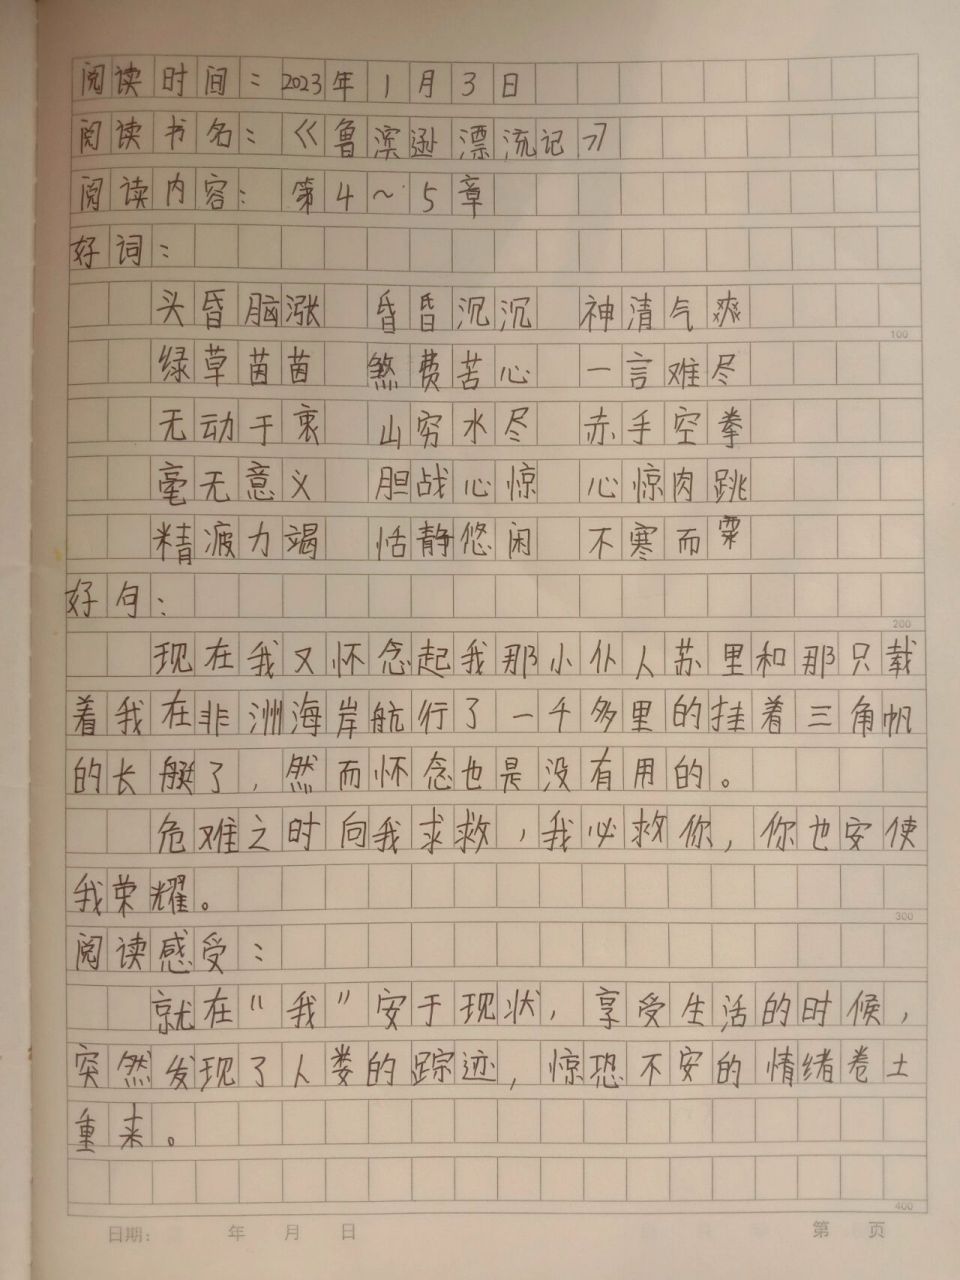 阅读时间：2023年1月3日
阅读书名：《鲁滨逊漂流记》
阅读内容：第4～5章
好词：
头昏脑涨 昏昏沉沉 神清气爽
100
绿草茵茵 煞费苦心 一言难尽
无动于衷 山穷水尽 赤手空拳
毫无意义 胆战心惊 心惊肉跳
精疲力竭 恬静悠闲 不寒而栗
好句：
200
现在我又怀念起我那小仆人苏里和那只载
着我在非洲海岸航行了一千多里的挂着三角帆
的长艇了，然而怀念也是没有用的。
危难之时向我求救，我必救你，你也安使
我荣耀。
300
阅读感受：
就在“我”安于现状，享受生活的时候，
突然发现了人类的踪迹，惊恐不安的情绪卷土
重来。
400
日期： 年 月 日 第 页